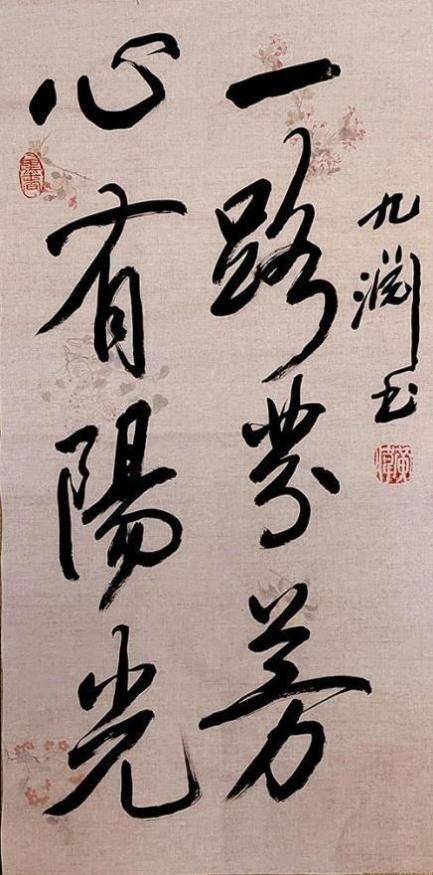 心有陽光
一路芬芳
九渊书